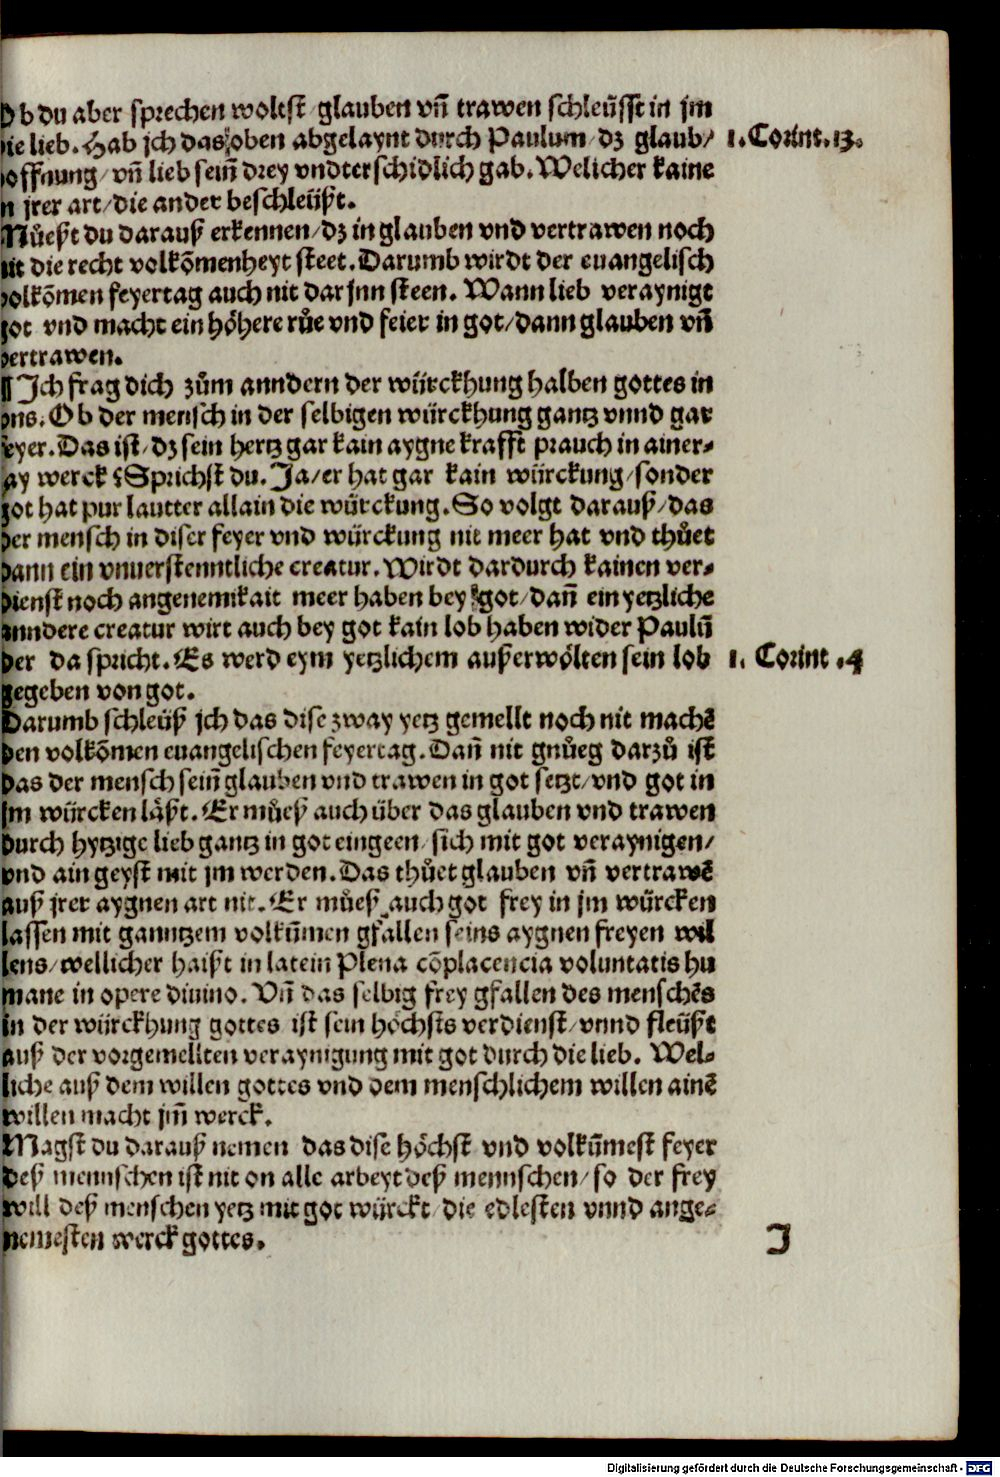 Ob du aber sprechen woltst/glauben vn̄ trawen schleüsst in jm
die lieb. Hab jch das oben abgelaynt durch Paulum/dz glaub/
hoffnung/vn̄ lieb sein̄ drey vndterschidlich gab. Welicher kaine
in jrer art/die ander beschleüßt.
1. Corint. 13.
Můeßt du darauß erkennen/dz in glauben vnd vertrawen noch
nit die recht volkōmenheyt steet. Darumb wirdt der euangelisch
volkōmen feyertag auch nit dar jnn steen. Wann lieb veraynigt
got vnd macht ein höhere růe vnd feier in got/dann glauben vn̄
vertrawen.
¶ Jch frag dich zům anndern der würckhung halben gottes in
vns. Ob der mensch in der selbigen würckhung gantz vnnd gar
feyer. Das ist/dz sein hertz gar kain aygne krafft prauch in ainer⸗
lay werck? Sprichst du. Ja/er hat gar kain würckung/sonder
got hat pur lautter allain die würckung. So volgt darauß/das
der mensch in diser feyer vnd würckung nit meer hat vnd thůet
dann ein vnuerstenntliche creatur. Wirdt dardurch kainen ver⸗
dienst noch angenemikait meer haben bey got/dan̄ ein yetzliche
anndere creatur wirt auch bey got kain lob haben wider Paulū
der da spricht. Es werd eym yetzlichem außerwölten sein lob
gegeben von got.
1. Corint. 4
Darumb schleüß jch das dise zway yetz gemellt noch nit machē
den volkōmen euangelischen feyertag. Dan̄ nit gnůeg darzů ist
das der mensch sein̄ glauben vnd trawen in got setzt/vnd got in
jm würcken läßt. Er můeß auch über das glauben vnd trawen
durch hytzige lieb gantz in got eingeen/sich mit got veraynigen/
vnd ain geyst mit jm werden. Das thůet glauben vn̄ vertrawē
auß jrer aygnen art nit. Er můeß auch got frey in jm würcken
lassen mit ganntzem volkūmen gfallen seins aygnen freyen wil
lens/wellicher haißt in latein Plena cōplacencia voluntatis hu
mane in opere diuino. Vn̄ das selbig frey gfallen des menschēs
in der würckhung gottes ist sein höchsts verdienst/vnnd fleüßt
auß der vorgemellten veraynigung mit got durch die lieb. Wel⸗
liche auß dem willen gottes vnd dem menschlichem willen ainē
willen macht jm̄ werck.
Magst du darauß nemen das dise höchst vnd volkūmest feyer
deß mennschen ist nit on alle arbeyt deß mennschen/so der frey
will deß menschen yetz mit got würckt/die edlesten vnnd ange⸗
nemesten werck gottes.
J
Digitalisierung gefördert durch die Deutsche Forschungsgemeinschaft - DFG